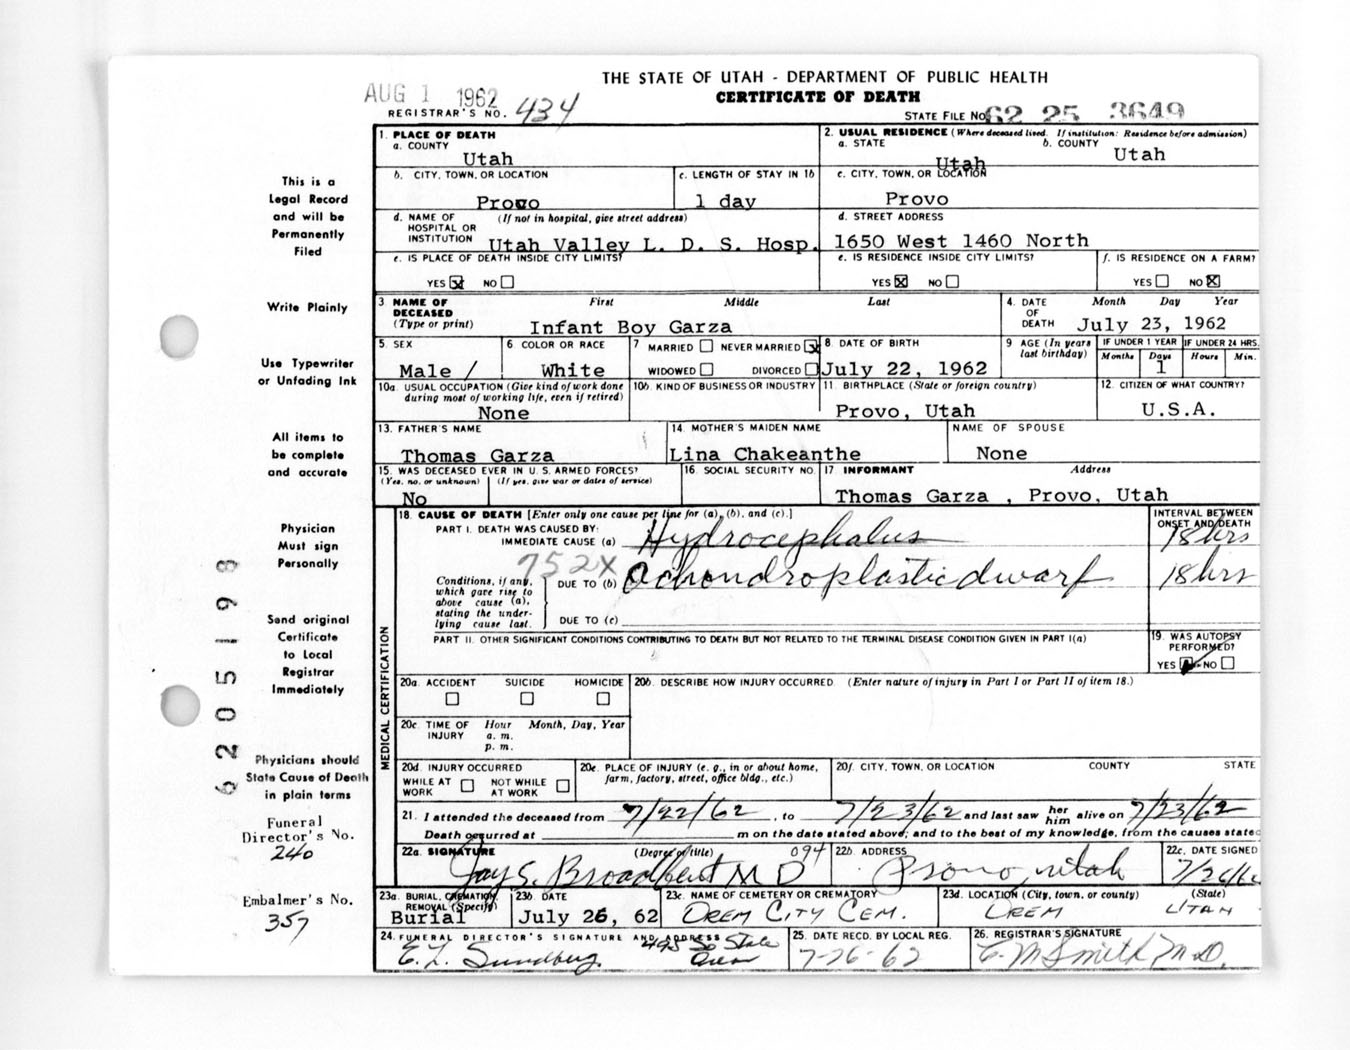 THE STATE OF UTAH - DEPARTMENT OF PUBLIC HEALTH
CERTIFICATE OF DEATH
AUG 1 1962
REGISTRAR'S NO. 434
STATE FILE No. 62 25 3649
This is a
Legal Record
and will be
Permanently
Filed
Write Plainly
Use Typewriter
or Unfading Ink
All items to
be complete
and accurate
Physician
Must sign
Personally
Send original
Certificate
to Local
Registrar
Immediately
Physicians should
State Cause of Death
in plain terms
Funeral
Director's No.
240
Embalmer's No.
357
6205198
1. PLACE OF DEATH
a. COUNTY
Utah
2. USUAL RESIDENCE (Where deceased lived. If institution: Residence before admission)
a. STATE
Utah
b. COUNTY
Utah
b. CITY, TOWN, OR LOCATION
Provo
c. LENGTH OF STAY IN 1b
1 day
c. CITY, TOWN, OR LOCATION
Provo
d. NAME OF HOSPITAL OR INSTITUTION (If not in hospital, give street address)
Utah Valley L. D. S. Hosp.
d. STREET ADDRESS
1650 West 1460 North
e. IS PLACE OF DEATH INSIDE CITY LIMITS?
YES NO
e. IS RESIDENCE INSIDE CITY LIMITS?
YES NO
f. IS RESIDENCE ON A FARM?
YES NO
3 NAME OF DECEASED (Type or print)
First Middle Last
Infant Boy Garza
4. DATE OF DEATH Month Day Year
July 23, 1962
5. SEX
Male /
6 COLOR OR RACE
White
7 MARRIED NEVER MARRIED
WIDOWED DIVORCED
8. DATE OF BIRTH
July 22, 1962
9 AGE (In years last birthday)
IF UNDER 1 YEAR IF UNDER 24 HRS.
Months Days Hours Min.
1
10a. USUAL OCCUPATION (Give kind of work done during most of working life, even if retired)
None
10b. KIND OF BUSINESS OR INDUSTRY
11. BIRTHPLACE (State or foreign country)
Provo, Utah
12. CITIZEN OF WHAT COUNTRY?
U.S.A.
13. FATHER'S NAME
Thomas Garza
14. MOTHER'S MAIDEN NAME
Lina Chakeanthe
NAME OF SPOUSE
None
15. WAS DECEASED EVER IN U.S. ARMED FORCES?
(Yes, no, or unknown) (If yes, give war or dates of service)
No
16. SOCIAL SECURITY NO.
17 INFORMANT Address
Thomas Garza , Provo, Utah
MEDICAL CERTIFICATION
18. CAUSE OF DEATH [Enter only one cause per line for (a), (b), and (c).]
PART I. DEATH WAS CAUSED BY:
IMMEDIATE CAUSE (a) Hydrocephalus
INTERVAL BETWEEN ONSET AND DEATH
18 hrs
752X
Conditions, if any, which gave rise to above cause (a), stating the underlying cause last.
DUE TO (b) Achondroplastic dwarf
18 hrs
DUE TO (c)
PART II. OTHER SIGNIFICANT CONDITIONS CONTRIBUTING TO DEATH BUT NOT RELATED TO THE TERMINAL DISEASE CONDITION GIVEN IN PART I(a)
19. WAS AUTOPSY PERFORMED?
YES NO
20a. ACCIDENT SUICIDE HOMICIDE
20b. DESCRIBE HOW INJURY OCCURRED. (Enter nature of injury in Part I or Part II of item 18.)
20c. TIME OF INJURY Hour Month, Day, Year
a. m.
p. m.
20d. INJURY OCCURRED
WHILE AT WORK NOT WHILE AT WORK
20e. PLACE OF INJURY (e. g., in or about home, farm, factory, street, office bldg., etc.)
20f. CITY, TOWN, OR LOCATION COUNTY STATE
21. I attended the deceased from 7/22/62, to 7/23/62 and last saw her him alive on 7/23/62
Death occurred at m on the date stated above; and to the best of my knowledge, from the causes stated
22a. SIGNATURE (Degree or title) 094
Jay S. Broadbent M D
22b. ADDRESS
Provo, Utah
22c. DATE SIGNED
23a. BURIAL, CREMATION, REMOVAL (Specify)
Burial
23b. DATE
July 26, 62
23c. NAME OF CEMETERY OR CREMATORY
OREM CITY CEM.
23d. LOCATION (City, town, or county) (State)
OREM UTAH
24. FUNERAL DIRECTOR'S SIGNATURE AND ADDRESS
E. L. Sundberg 495 So State
Orem
25. DATE RECD. BY LOCAL REG.
7-26-62
26. REGISTRAR'S SIGNATURE
C. M Smith M.D.